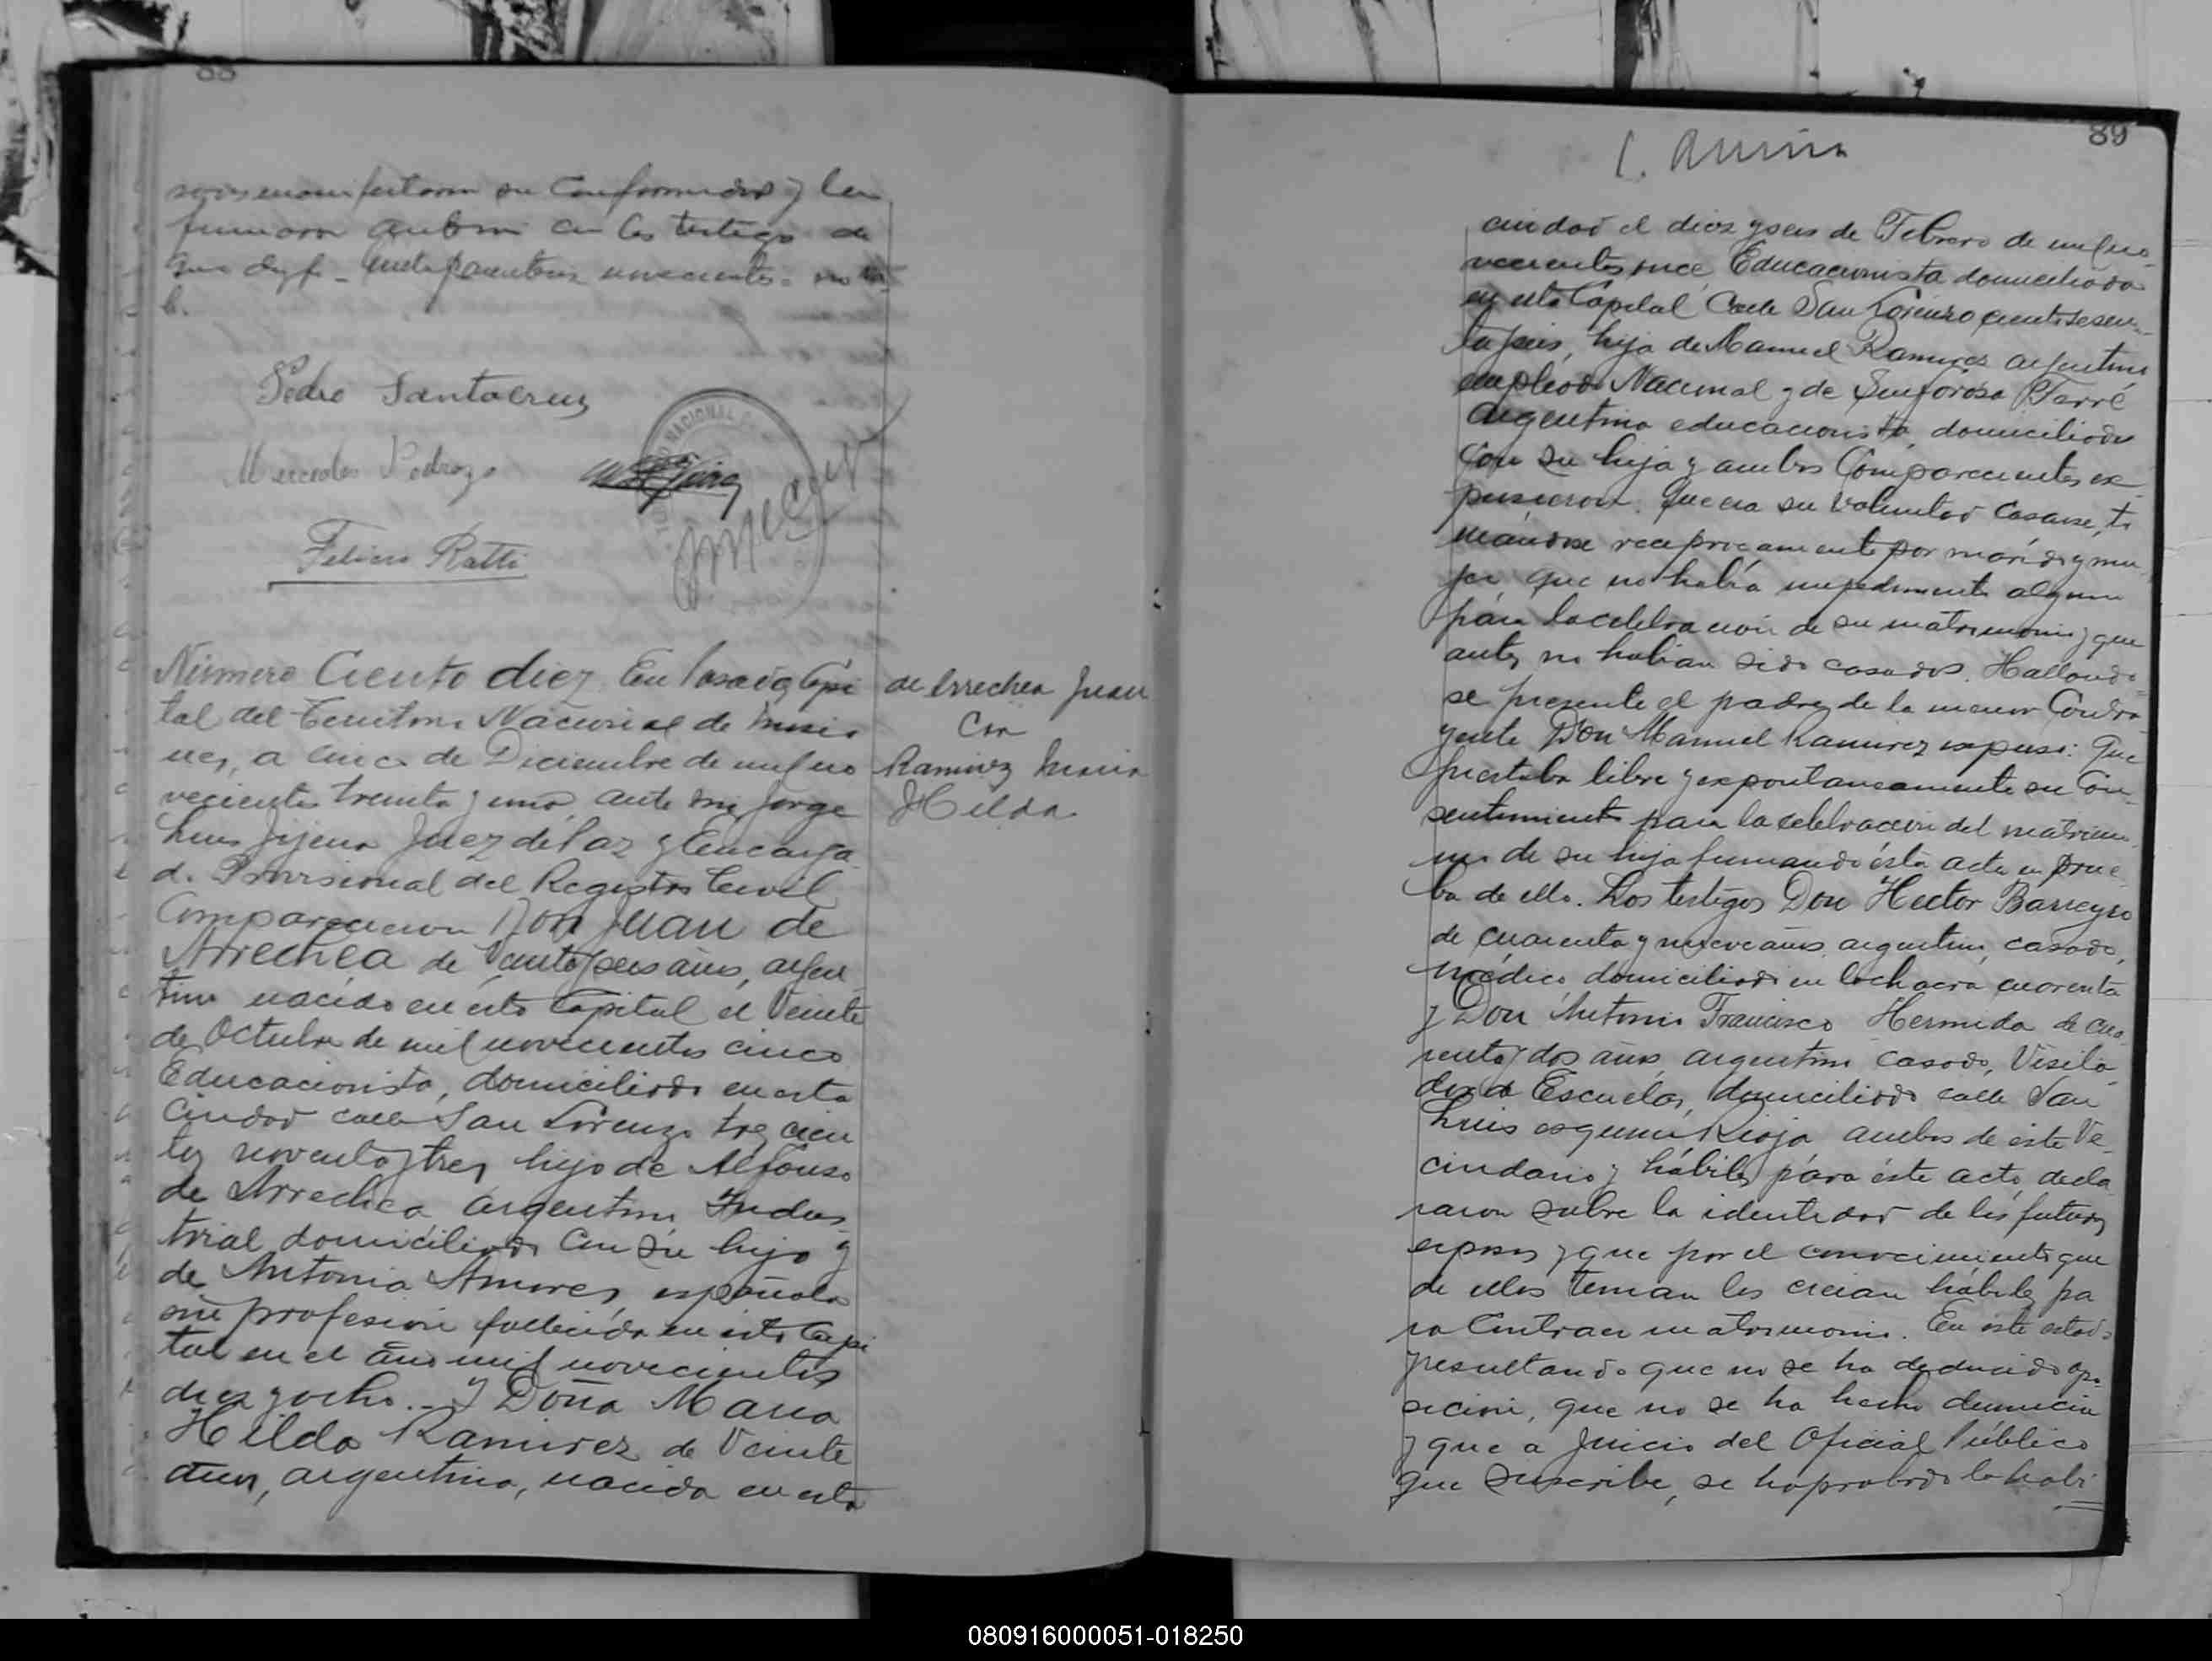 88
firmaron
que doy fe
Pedro Santacruz
Mercedes Pedrozo
Felicio Ratti
Número Ciento diez. En Posadas, Capi
tal del Territorio Nacional de Misio
nes, a cinco de Diciembre de mil no
vecientos treinta y uno, ante mi Jorge
Luis Jijena Juez de Paz y Encarga
do Provisional del Registro Civil
Comparecieron Don Juan de
Arrechea de Veintiseis años, argen
tino nacido en ésta Capital el Veinte
de Octubre de mil novecientos cinco
Educacionista, domiciliado en esta
Ciudad calle San Lorenzo trescien
tos noventa y tres, hijo de Alfonso
de Arrechea argentino Indus
trial domiciliado con su hijo y
de Antonia Amores, española
sin profesión fallecida en ésta Capi
tal en el año mil novecientos
diez y ocho.- Y Doña Maria
Hilda Ramirez de Veinte
años, argentina, nacida en esta
de Arrechea Juan
Con
Ramirez Maria
Hilda
89
ciudad el diez y seis de Febrero de mil no-
vecientos once, Educacionista domiciliada
en esta Capital Calle San Lorenzo ciento sesen-
ta y seis, hija de Manuel Ramirez argentino
empleado Nacional y de Sinforosa Tarré
argentina educacionista, domiciliados
con su hija y ambos Comparecientes ex-
pusieron: Que era su voluntad Casarse, to
mándose recíprocamente por marido y mu-
jer, que no había impedimento alguno
para la celebración de su matrimonio y que
antes no habian sido casados. Hallando-
se presente el padre de la menor Contra-
yente Don Manuel Ramirez expuso: Que
prestaba libre y expontaneamente su Con-
sentimiento para la celebración del matrimo-
nio de su hija firmando ésta acta en prue-
ba de ello. Los testigos Don Hector Barreyro
de cuarenta y nueve años, argentino, casado,
médico, domiciliado en la chacra cuarenta
y Don Antonio Francisco Hermida de cua-
renta y dos años, argentino casado, Visita-
dor de Escuelas, domiciliado calle San
Luis esquina Rioja ambos de éste Ve-
cindario y hábiles para éste acto decla
raron sobre la identidad de los futuros
esposos y que por el conocimiento que
de ellos tenian los creian hábiles pa
ra Contraer matrimonio. En éste estado
y resultando que no se ha deducido opo-
sición, que no se ha hecho denuncia
y que a Juicio del Oficial Público
que suscribe, se ha probado la habi
080916000051-018250